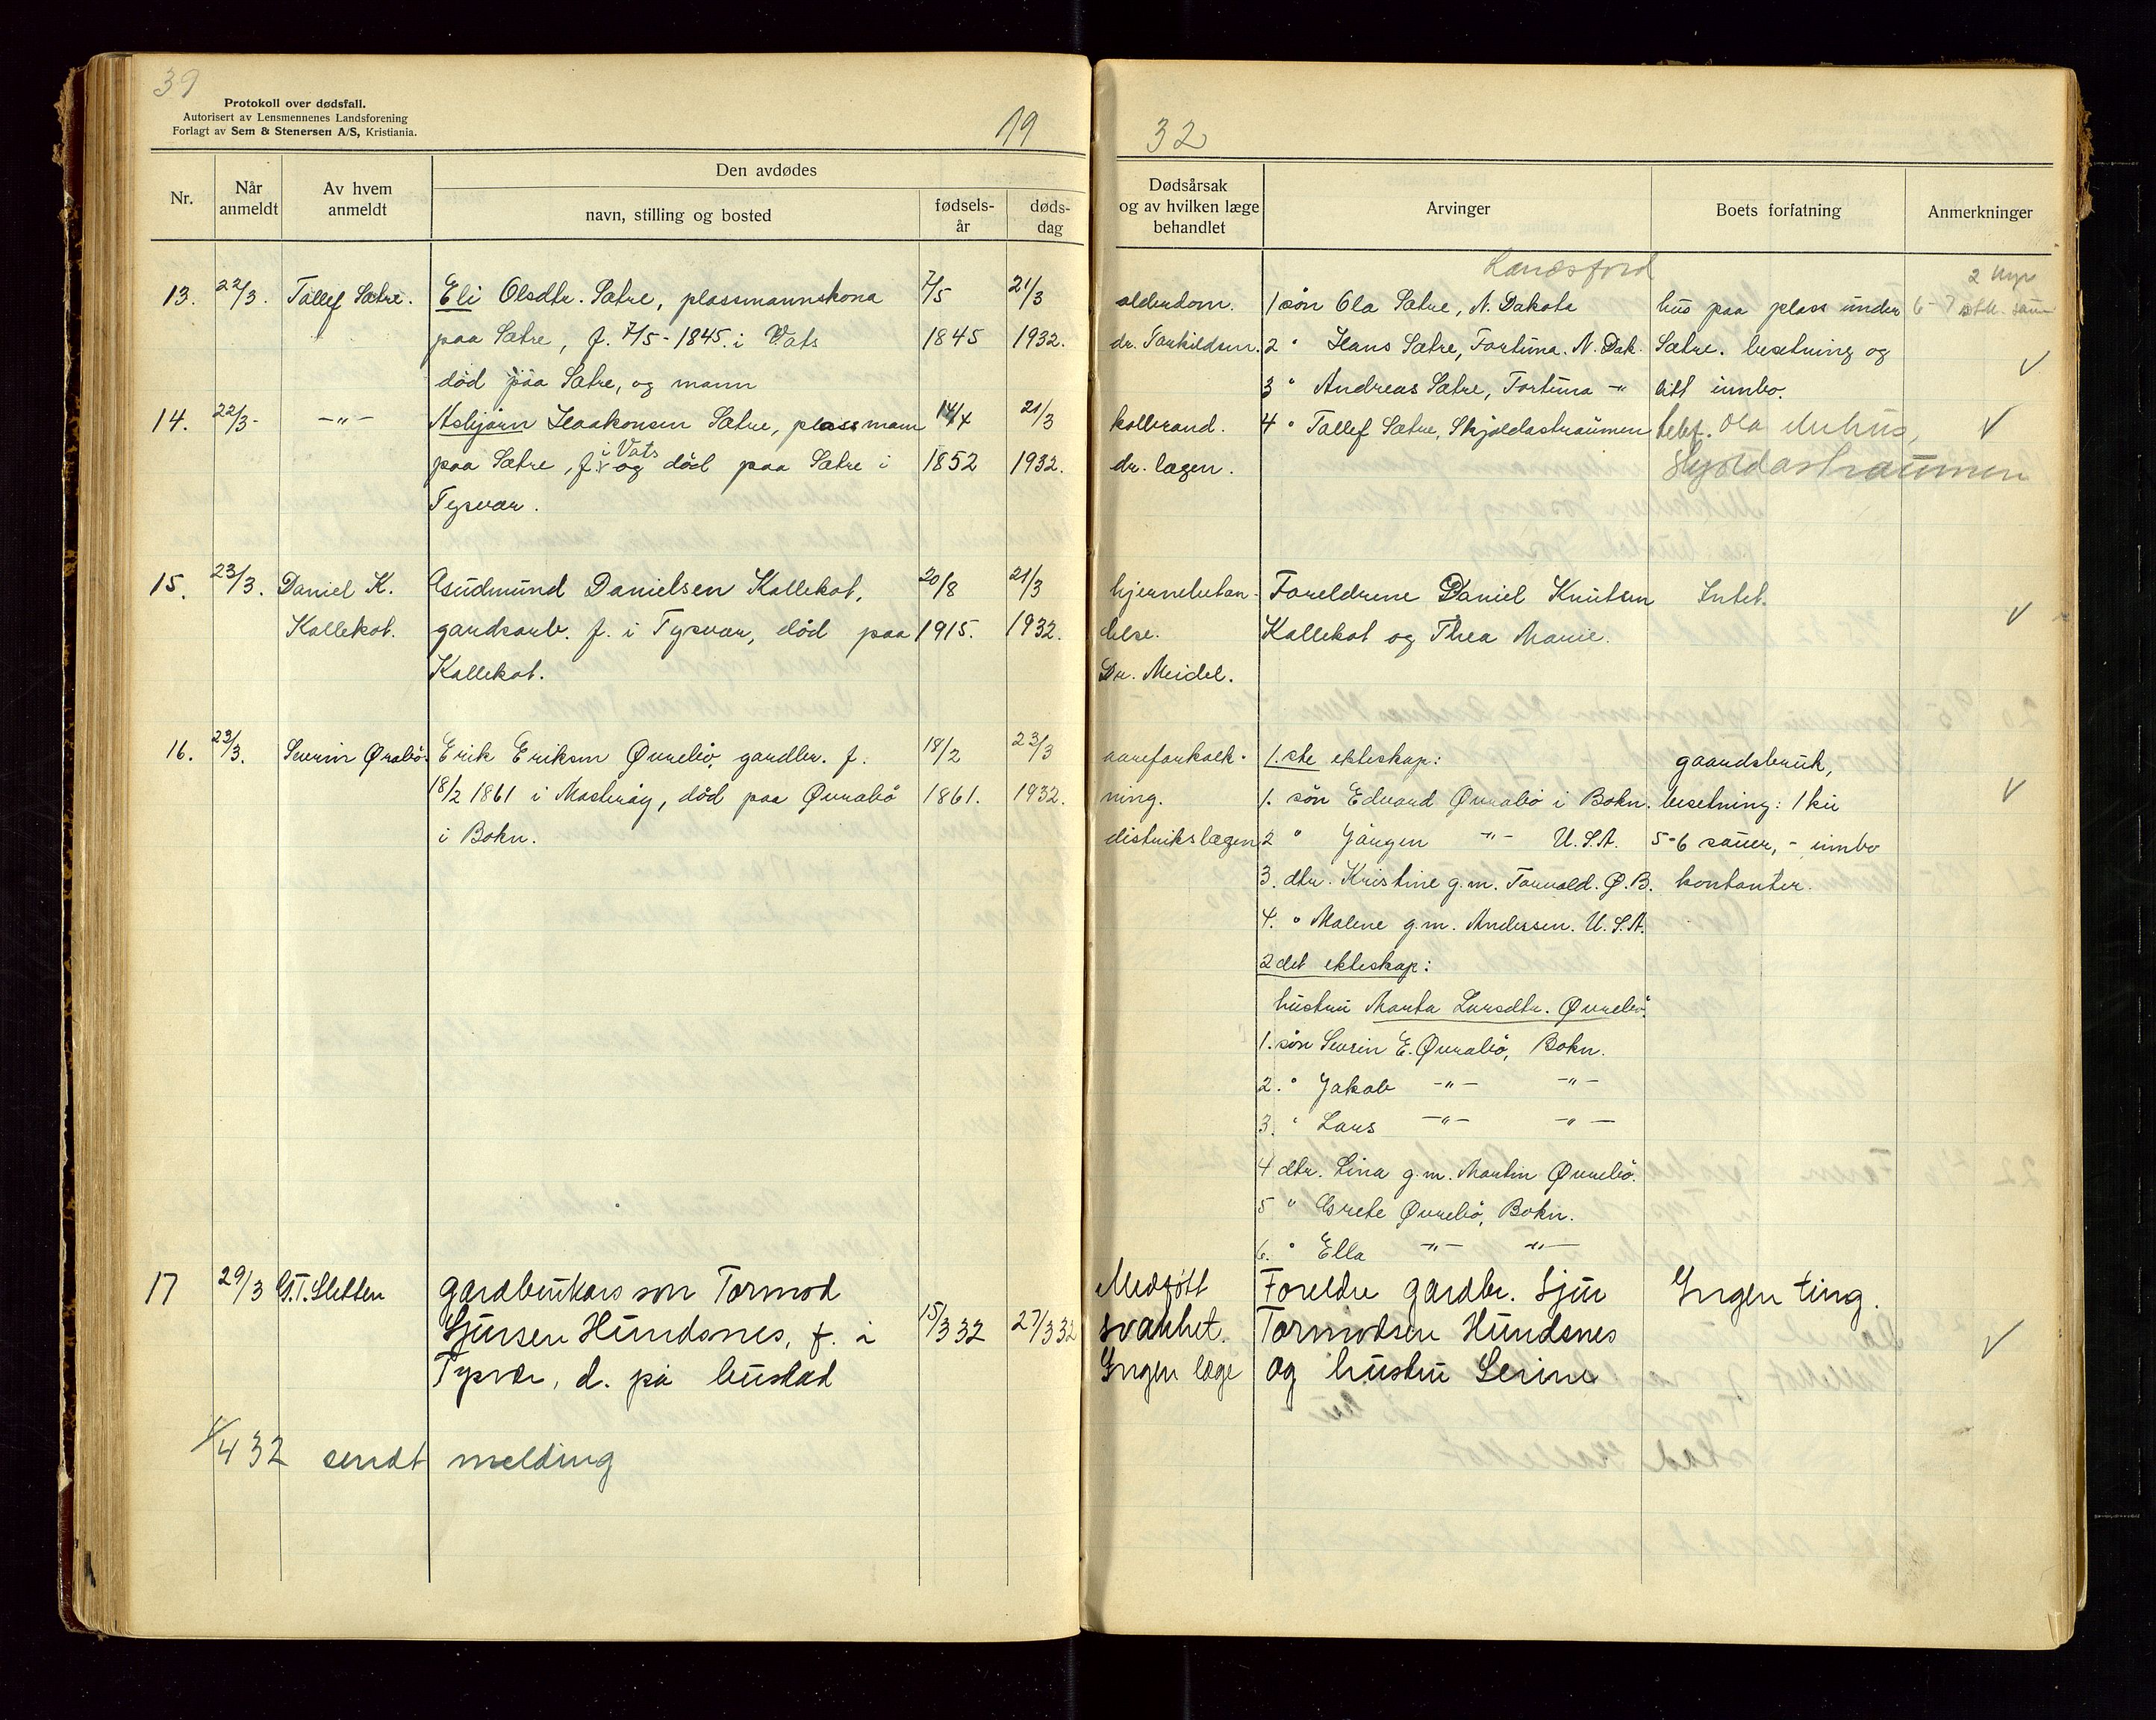 39
Protokoll over dødsfall.
Autorisert av Lensmennenes Landsforening
Forlagt av Sem & Stenersen A/S, Kristiania.
19 32
Nr.
Når anmeldt
Av hvem anmeldt
Den avdødes
navn, stilling og bosted
fødsels-år
døds-dag
Dødsårsak og av hvilken læge behandlet
Arvinger
Boets forfatning
Anmerkninger
13. 22/3. Tallef Sætre. Eli Olsdtr. Sætre, plassmannskona 7/5 21/3
paa Sætre, f. 7/5-1845. i Vats 1845 1932.
død paa Sætre, og mann
alderdom.
dr. Torkildsen.
1 søn Ola Sætre, N. Dakota
2 " Hans Sætre, Fortuna. N. Dak.
3 " Andreas Sætre, Fortuna -"-
4 " Tallef Sætre, Skjoldastraumen
hus paa plass under
Sætre. besetning og
litt innbo.
telef. Ola
Skjoldastraumen
2 kyr
6-7 stk. sau
14. 22/3- -"- Asbjørn Haakonsen Sætre, plassmann 14/4 21/3
paa Sætre, f. i Vats og død paa Sætre i 1852 1932.
Tysvær.
kolbrand.
dr. lægen.
15. 23/3. Daniel K. Gudmund Danielsen Kallekot, 20/8 21/3
Kallekot. gardsarb. f. i Tysvær, død paa 1915. 1932.
Kallekot.
hjernebetæn-
delse.
Dr. Meidel.
Foreldrene Daniel Knutsen
Kallekot og Thea Marie.
Intet.
16. 23/3. Severin Øvrabö. Erik Eriksen Øvrebö, gardbr. f. 18/2 23/3
18/2 1861 i Mosterøy, død paa Øvrabö 1861. 1932.
i Bokn.
aareforkalk-
ning.
distrikslægen
1.ste ekteskap:
1. søn Edvard Øvrabö i Bokn.
2 " Jörgen -"- U.S.A.
3. dtr. Kristine g.m. Torvald. Ø. B.
4. " Malene g.m. Andersen. U.S.A.
2det ekteskap:
hustru Marta Larsdtr. Øvrebö.
1. søn Severin E. Øvrabö, Bokn.
2. " Jakob -"- -"-
3. " Lars -"- -"-
4 dtr. Lina g.m. Martin Øvrebö.
5 " Grete Øvrebö, Bokn.
6. " Ella -"- -"-
gaardsbruk,
besetning: 1 ku
5-6 sauer, - innbo
kontanter.
17 29/3 G.T. Sletten gardbrukars son Tormod
Sjursen Hundsnes, f. i 15/3 32 27/3 32
Tysvær, d. på bustad
Medfött
svakhet.
Ingen læge
Foreldre gardbr. Sjur
Tormodsen Hundsnes
og hustru Serine
Ingen ting.
1/4 32 sendt melding